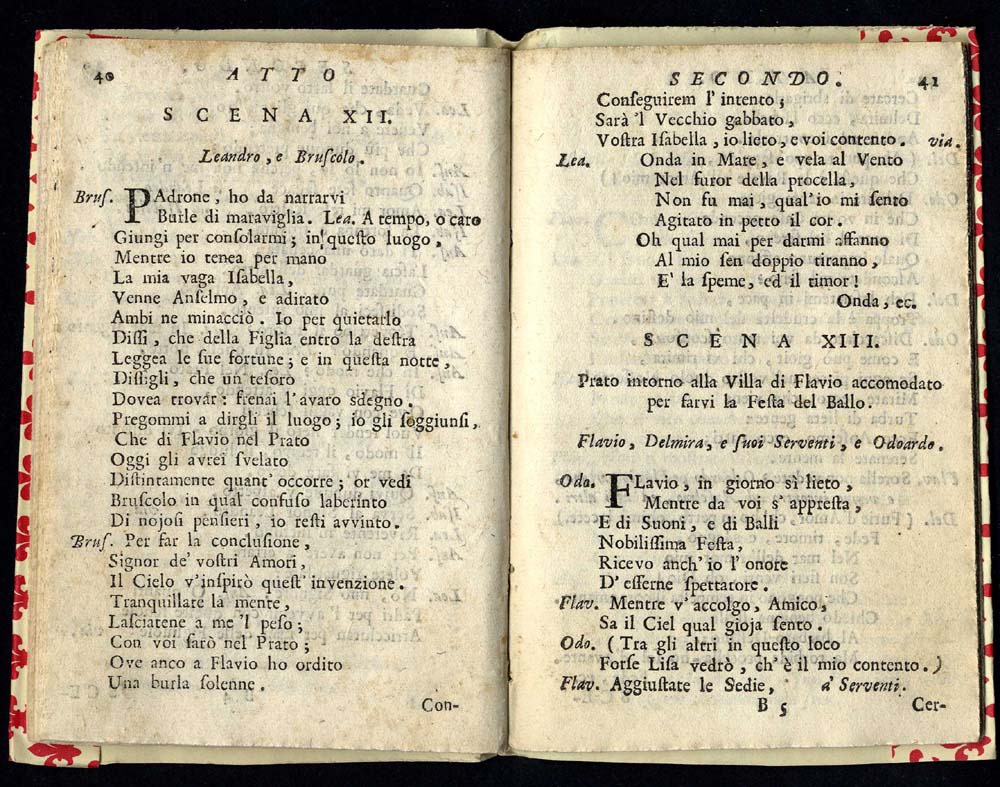 40 ATTO
SCENA XII.
Leandro, e Bruscolo.
Brus. PAdrone, ho da narrarvi
Burle di maraviglia. Lea. A tempo, o caro
Giungi per consolarmi; in questo luogo,
Mentre io tenea per mano
La mia vaga Isabella,
Venne Anselmo, e adirato
Ambi ne minacciò. Io per quietarlo
Dissi, che della Figlia entro la destra
Leggea le sue fortune; e in questa notte,
Dissigli, che un tesoro
Dovea trovar: frenai l'avaro sdegno.
Pregommi a dirgli il luogo; io gli soggiunsi,
Che di Flavio nel Prato
Oggi gli avrei svelato
Distintamente quant' occorre; or vedi
Bruscolo in qual confuso laberinto
Di nojosi pensieri, io resti avvinto.
Brus. Per far la conclusione,
Signor de' vostri Amori,
Il Cielo v'inspirò quest' invenzione.
Tranquillate la mente,
Lasciatene a me 'l peso;
Con voi sarò nel Prato;
Ove anco a Flavio ho ordito
Una burla solenne.
Con-
SECONDO. 41
Conseguirem l' intento;
Sarà 'l Vecchio gabbato,
Vostra Isabella, io lieto, e voi contento. via.
Lea. Onda in Mare, e vela al Vento
Nel furor della procella,
Non fu mai, qual' io mi sento
Agitato in petto il cor.
Oh qual mai per darmi affanno
Al mio sen doppio tiranno,
E' la speme, ed il timor!
Onda, ec.
SCÈNA XIII.
Prato intorno alla Villa di Flavio accomodato
per farvi la Festa del Ballo.
Flavio, Delmira, e suoi Serventi, e Odoardo.
Odo. FLavio, in giorno sì lieto,
Mentre da voi s' appresta,
E di Suoni, e di Balli
Nobilissima Festa,
Ricevo anch' io l' onore
D' esserne spettatore.
Flav. Mentre v' accolgo, Amico,
Sa il Ciel qual gioja sento.
Odo. (Tra gli altri in questo loco
Forse Lisa vedrò, ch' è il mio contento.)
Flav. Aggiustate le Sedie, a' Serventi.
B 5 Cer-